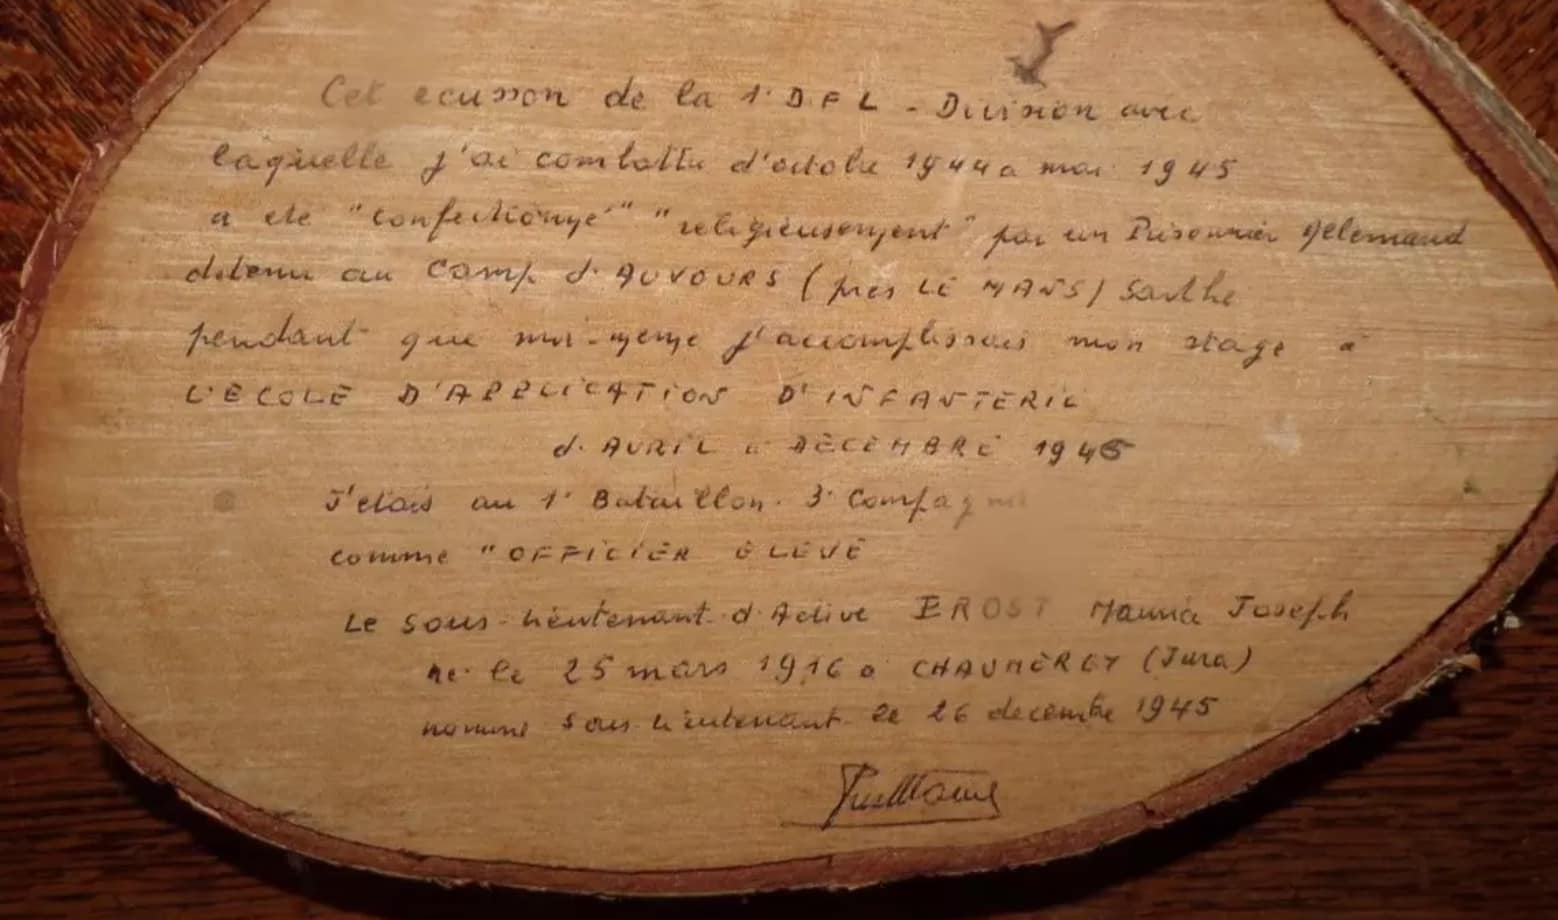 Cet ecusson de la 1° D F L - Division avec
laquelle j'ai combattu d'octobre 1944 a mai 1945
a ete "confectionné" "religieusement" par un Prisonnier Allemand
detenu au Camp d'AUVOURS (près LE MANS) Sarthe
pendant que moi-même j'accomplissais mon stage à
L'ECOLE D'APPLICATION D'INFANTERIE
d'AVRIL a DÉCEMBRE 1945
J'etais au 1° Bataillon. 3° Compagnie
comme "OFFICIER ÉLEVÉ
Le Sous-lieutenant d'Active Maurice Joseph
né le 25 mars 1916 à CHAUMERGY (Jura)
nommé Sous-lieutenant le 26 decembre 1945